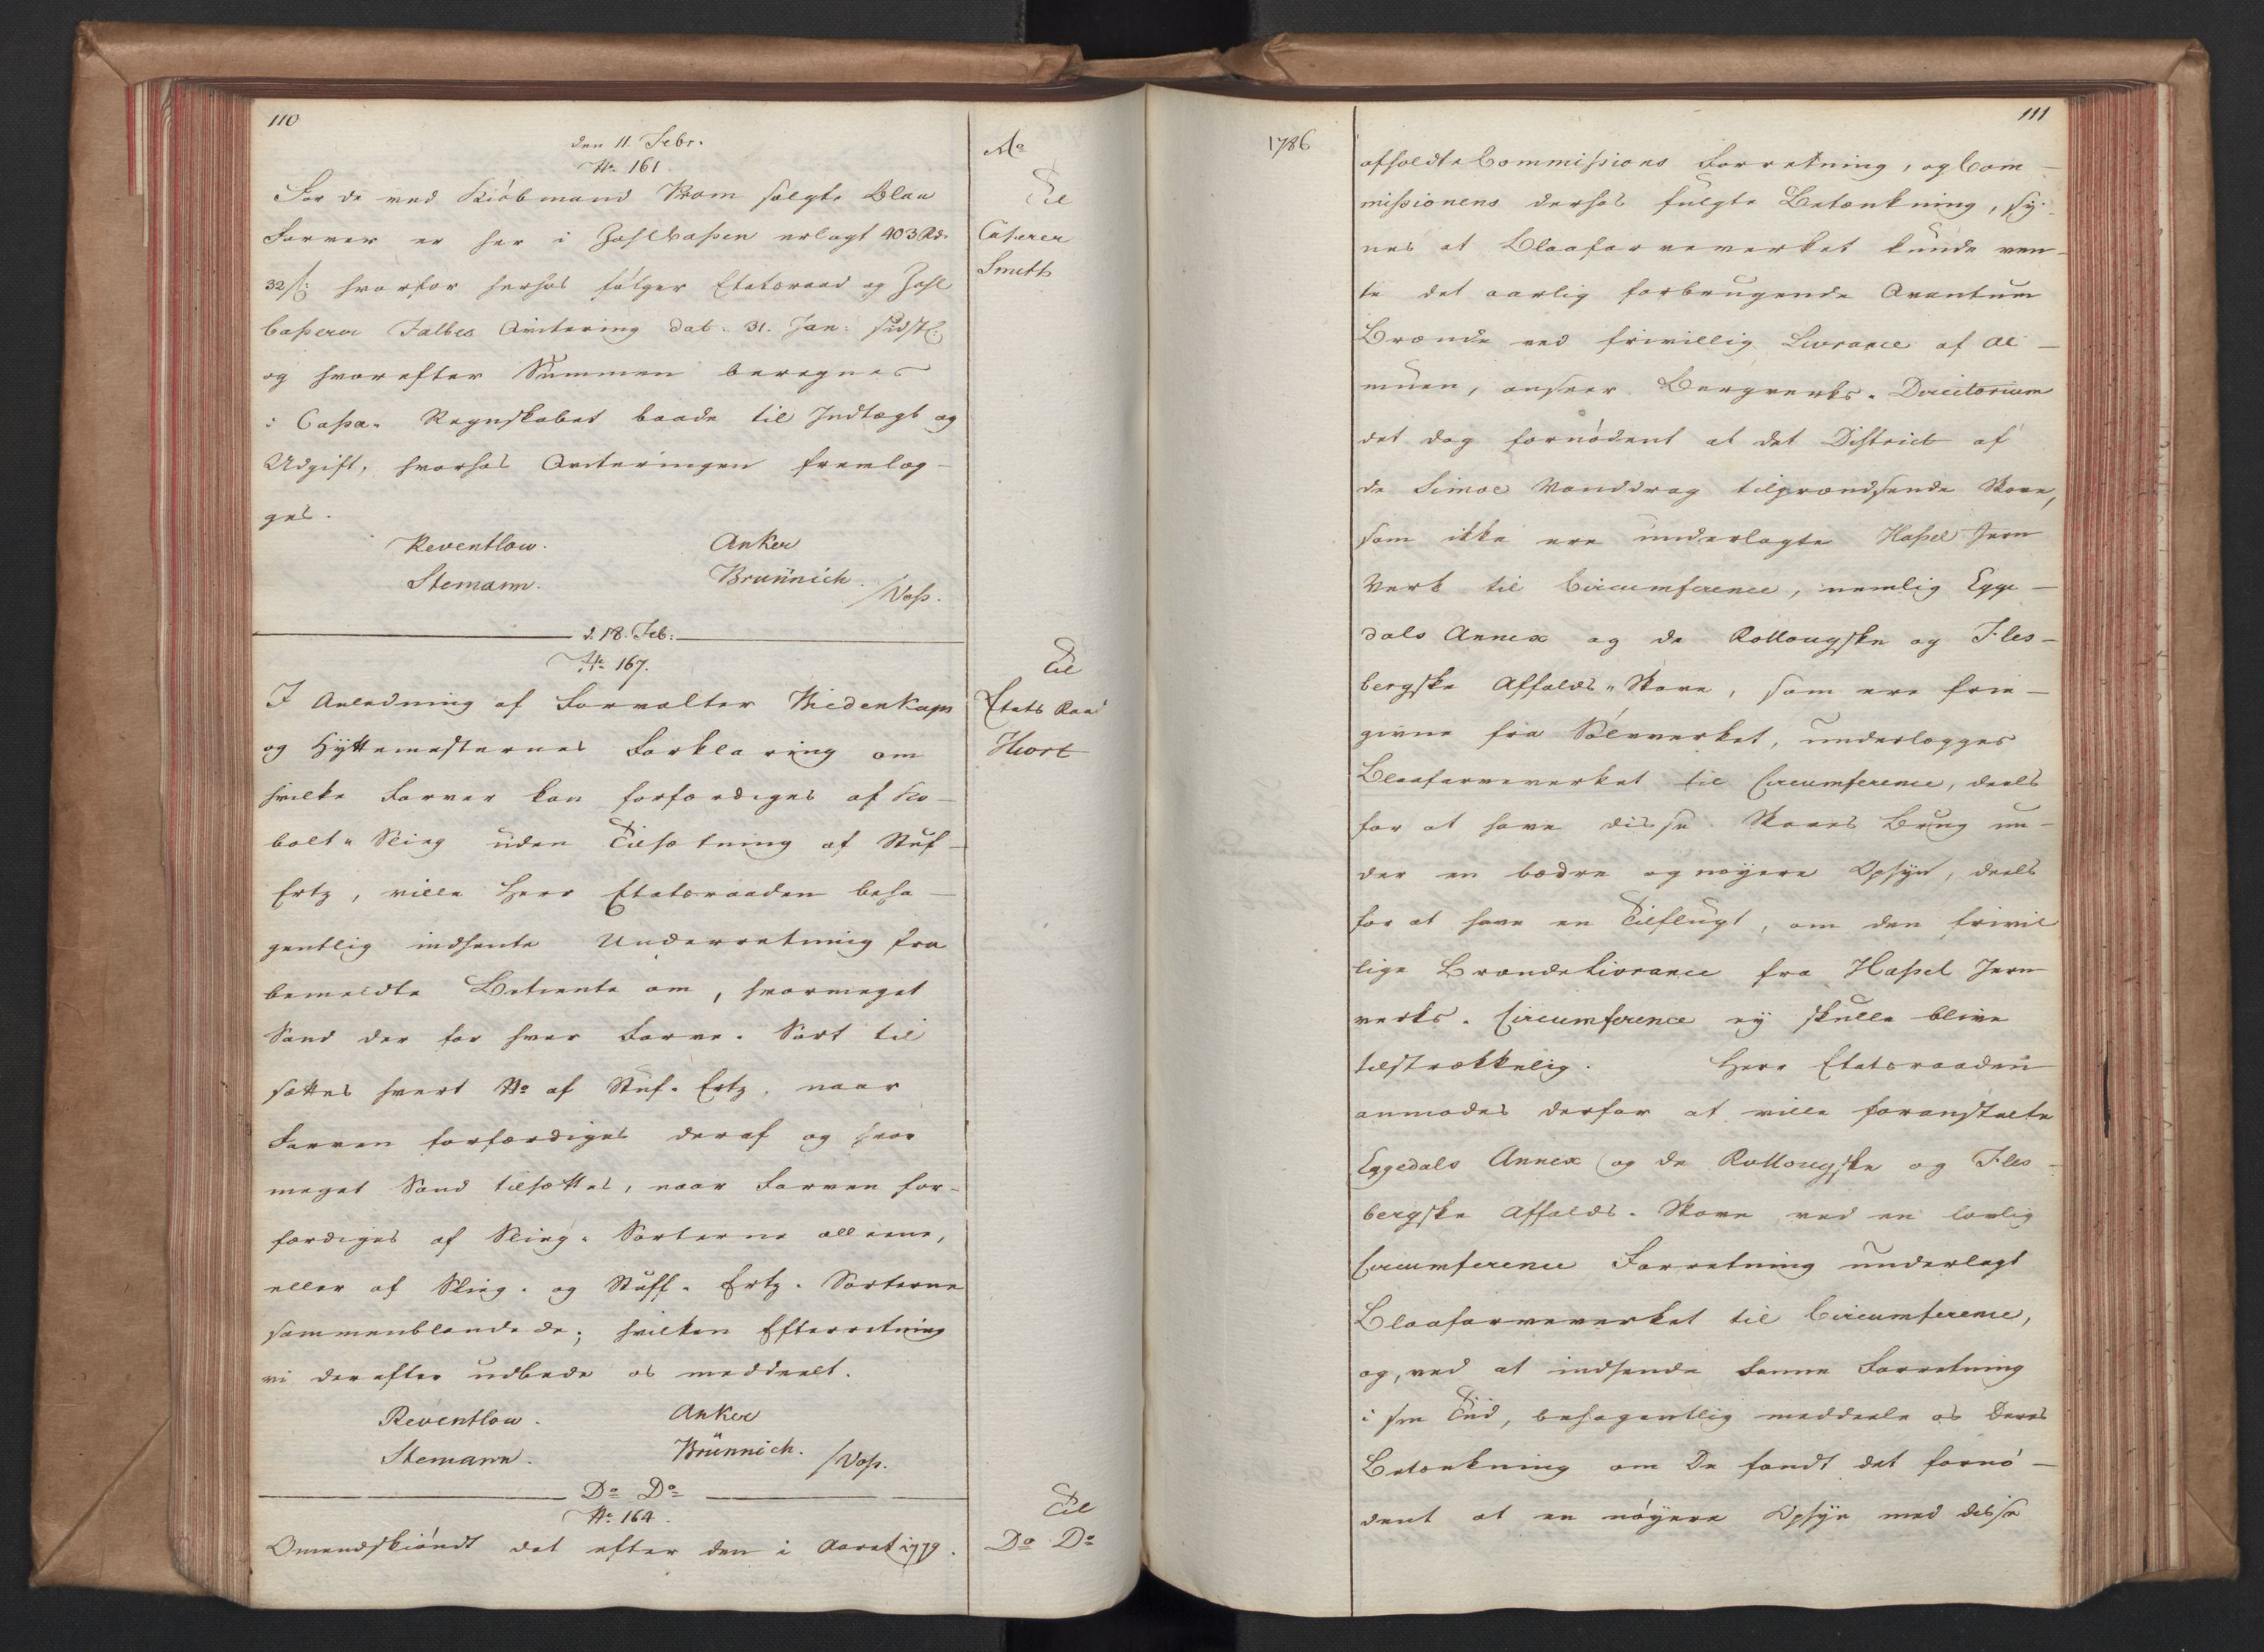 110
den 11. Febr.
No 161.
For de ved Kiöbmand Krom solgte Blaa
Farver er her i Zahlkassen erlagt 403 Rd.
32 s: hvorfor herhos fölger Etatsraad og Zahl
Casserer Falbes Qvitering dat. 31. Jan: sidstl:
og hvorefter Summen beregnes
i Cassa-Regnskabet baade til Indtægt og
Udgift, hvorhos Qviteringen fremlæg-
ges.
Reventlow. Anker
Stemann. Brünnich. /Voss.
Ao
Til
Casserer
Smith
d. 18. Feb:
No 167.
I Anledning af Forvalter Wiedenkaps
og Hyttemesternes Forklaring om
hvilke Farver kan forfærdiges af Ko-
bolt-Slieg uden Tilsætning af Stuf-
Ertz, ville Herr Etatsraaden beha-
gentlig indhente Underretning fra
bemeldte Betiente om, hvormeget
Sand der for hver Farve-Sort til
sættes hvert No af Stuf-Ertz, naar
Farven forfærdiges deraf og hvor
meget Sand tilsættes, naar Farven for-
færdiges af Slieg-Sorterne alleene,
eller af Slieg- og Stuff-Ertz-Sorterne
sammenblandede; hvilken Efterretning
vi derefter udbede os meddeelt.
Reventlow. Anker
Stemann. Brünnich. /Voss.
Til
Etats Raad
Hiort
Do Do
No 164.
Omendskiöndt det efter den i Aaret 1779.
Til
Do Do
1786
111
afholdte Commissions Forretning, og Com-
missionens derhos fulgte Betænkning, sy-
nes at Blaafarveverket kunde ven-
te det aarlig forbrugende Qvantum
Brænde ved frivillig Livrance af Al-
muen, anseer Bergverks-Directorium
det dog fornödent at det District af
de Simoe Vanddrag tilgrændsende Skove,
som ikke ere underlagte Hassel Jern
Verk til Circumference, nemlig Egge-
dals Annex og de Rollougske og Fles-
bergske Affalds-Skove, som ere frie-
givne fra Sölvverket, underlægges
Blaafarveverket til Circumference, deels
for at have disse Skoves Brug un-
der en bedre og nöyere Opsyn, deels
for at have en Tilflugt, om den frivil
lige Brænde Livrance fra Hassel Jern
verks-Circumference ey skulle blive
tilstrækkelig. Herr Etatsraaden
anmodes derfor at ville foranstalte
Eggedals Annex og de Rollougske og Fles-
bergske Affalds-Skove ved en lovlig
Circumference Forretning underlagt
Blaafarveverket til Circumference,
og, ved at indsende denne Forretning
i sin Tiid, behagentlig meddeele os Deres
Betænkning om De fandt det fornö-
dent at en nöyere Opsyn med disse